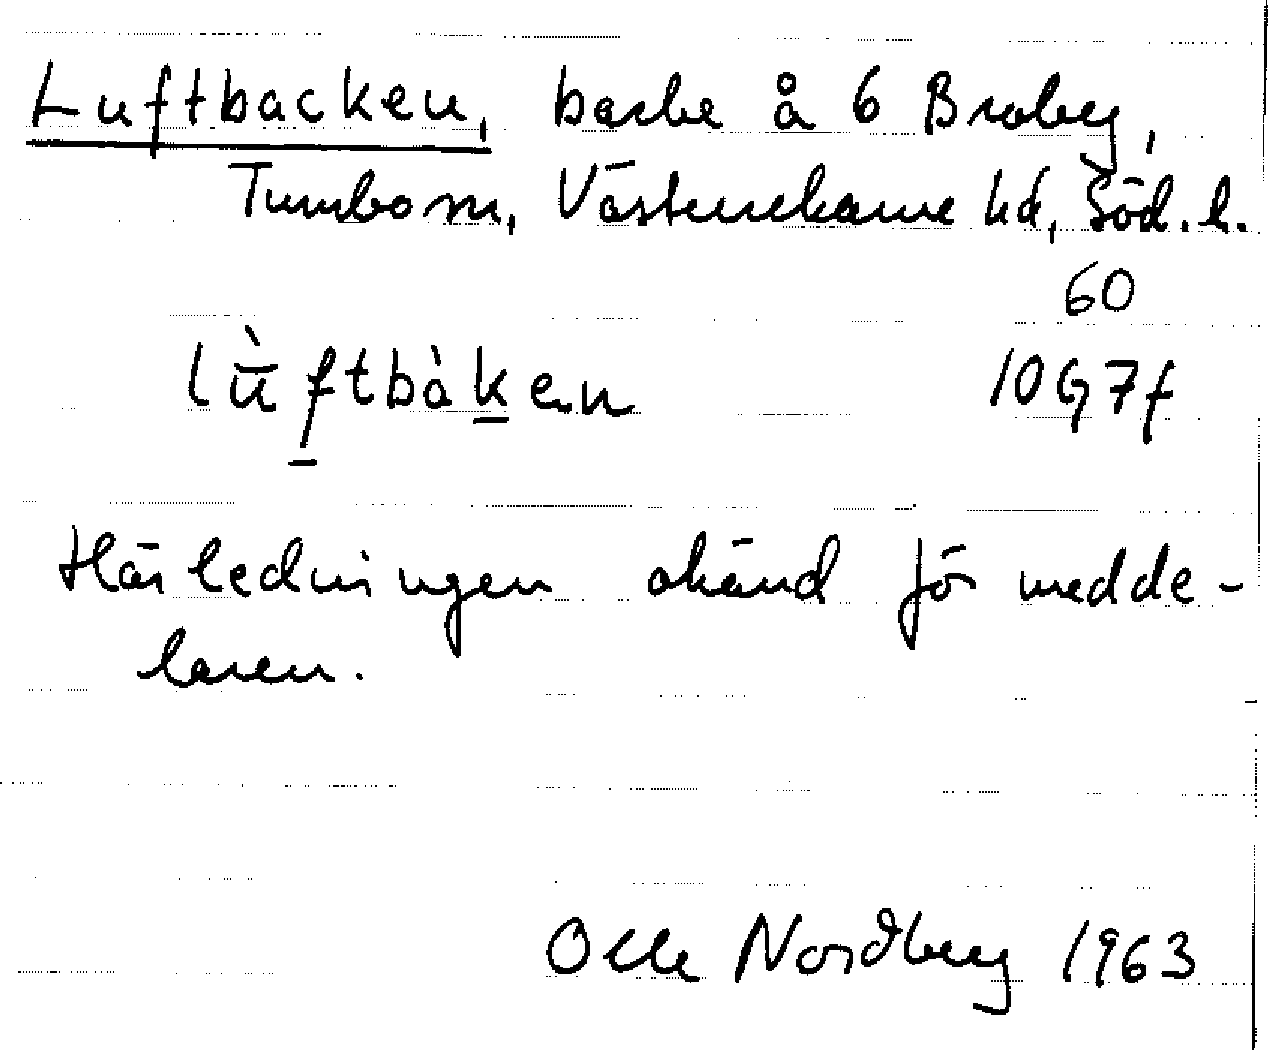 Luftbacken, backe å 6 Broby,
Tumbo sn, Västerrekarne hd, Söd. l.
60
lù̄ftbàken 10G7f
Härledningen okänd för medde-
laren.
Olle Nordberg 1963